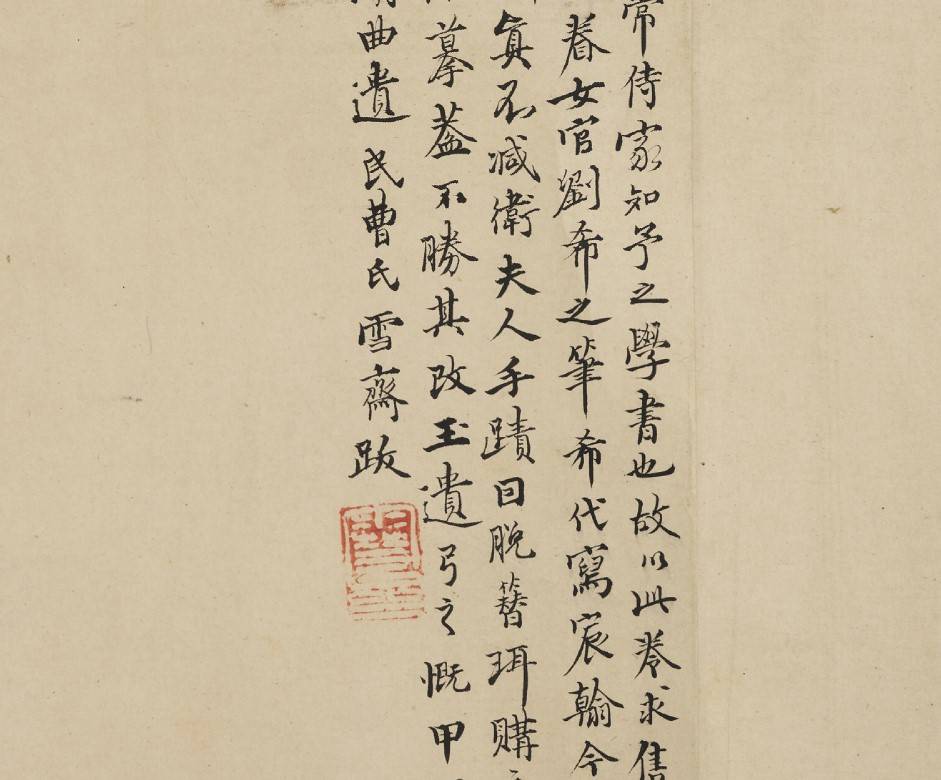 常侍家知予之學書也故以此卷求售
眷女官劉希之筆希代寫宸翰今
真不减衛夫人手蹟因脫簪珥購
摹葢不勝其改玉遺弓之慨甲
曲遺民曹氏雪齋跋